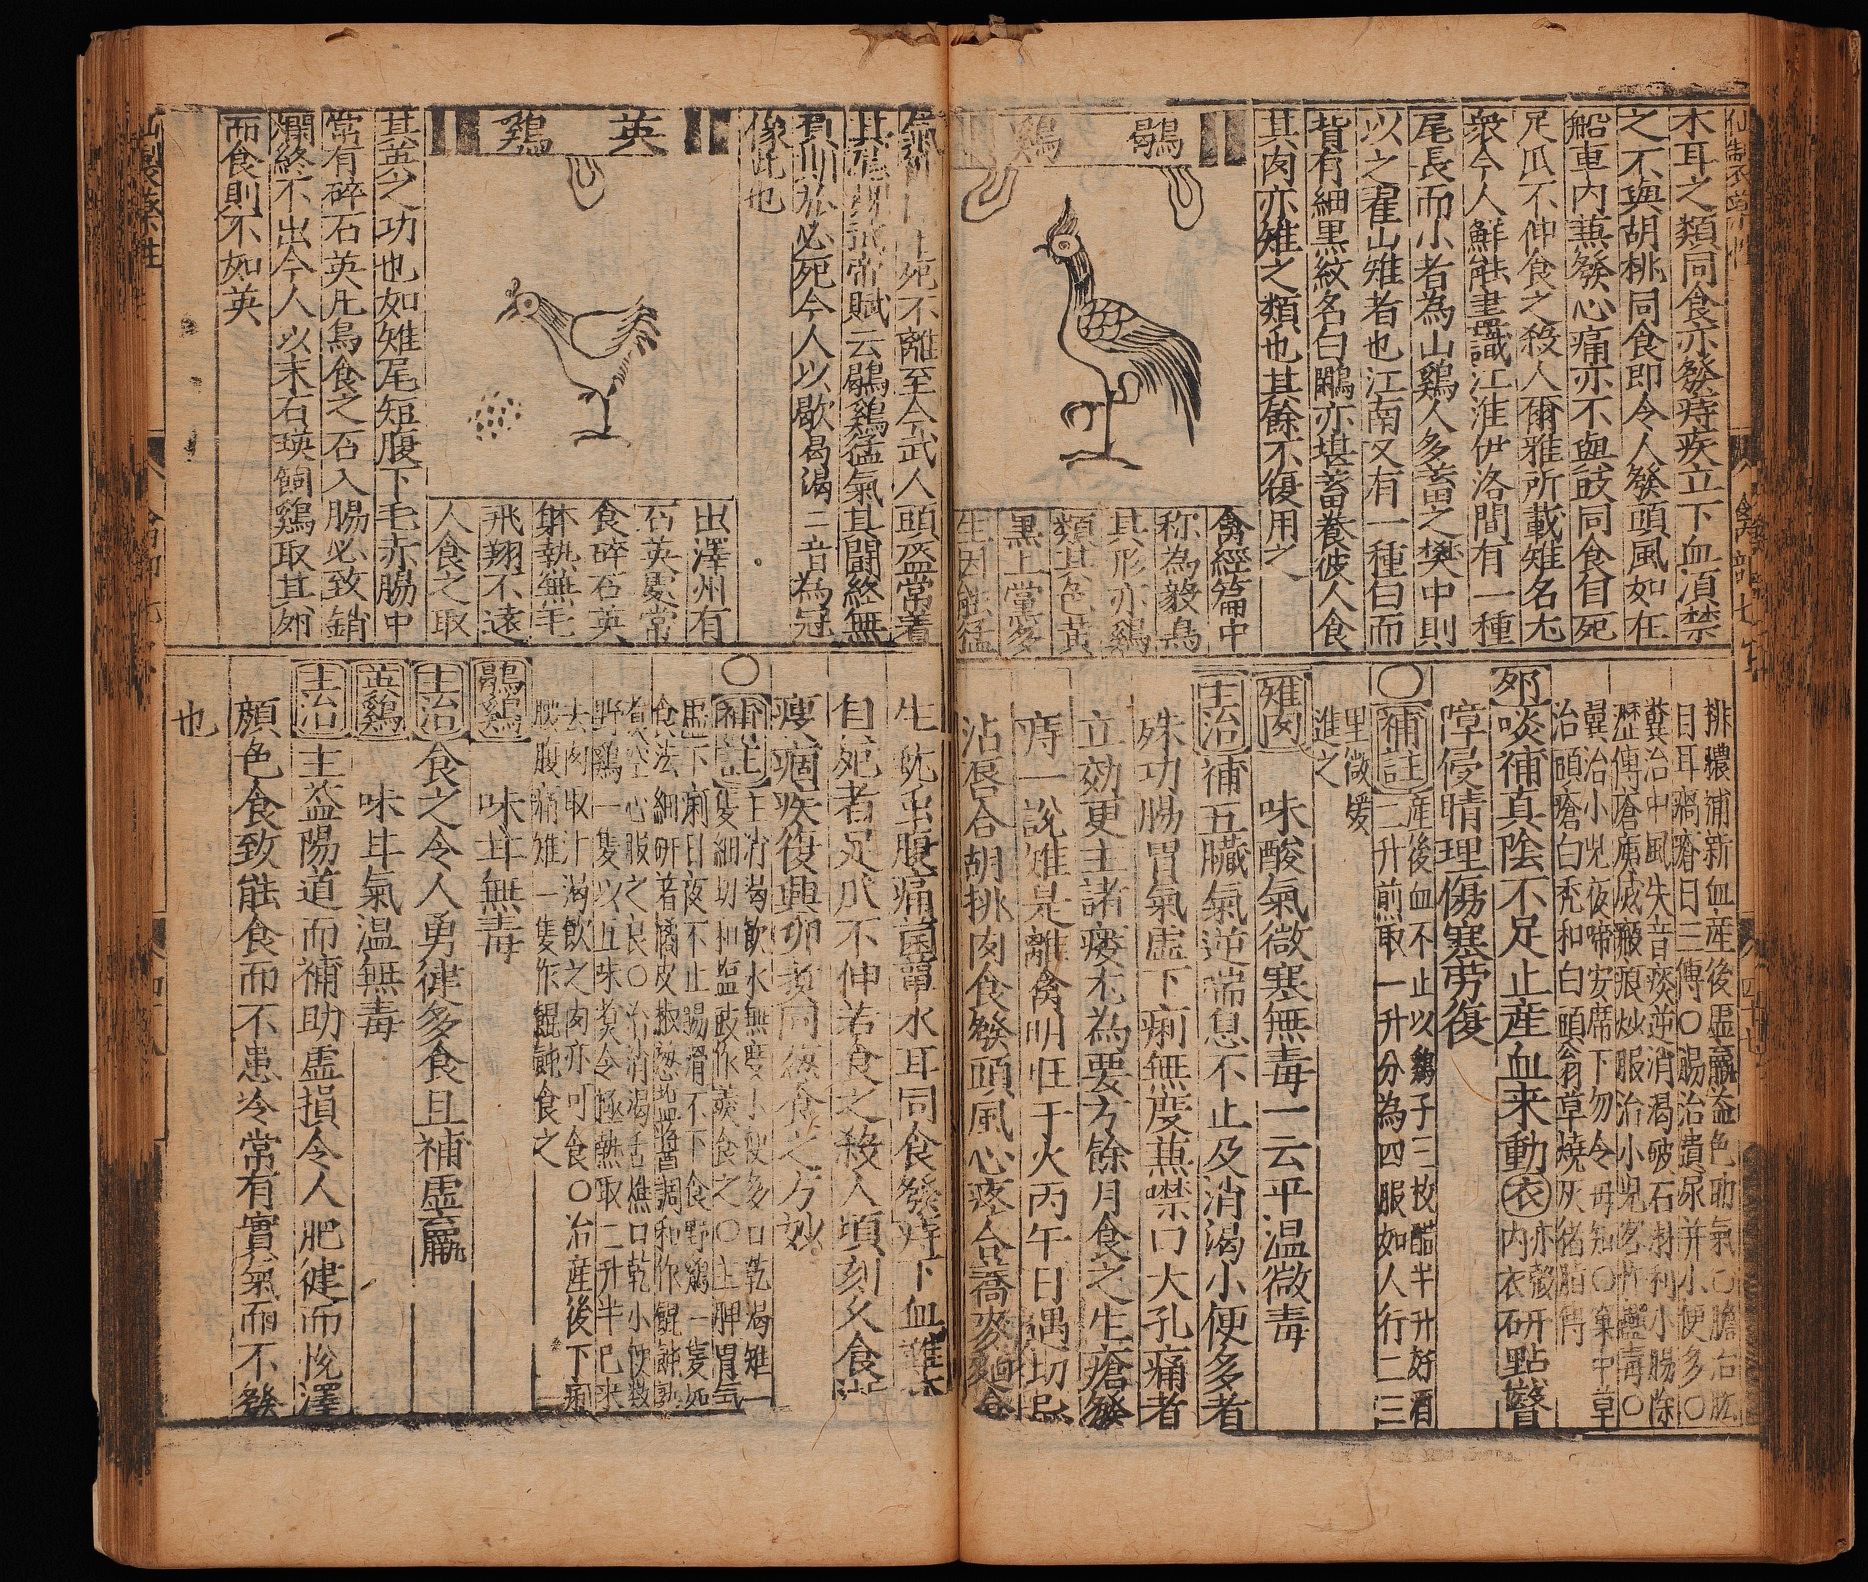 木耳之類同食亦發痔疾立下血湏禁
之不與胡桃同食即令人發頭風如在
船車内兼發心痛亦不與豉同食自死
足爪不伸食之殺人爾雅所載雉名尤
衆今人鮮能盡識江淮伊洛間有一種
尾長而小者為山鷄人多畜之樊中則
以之翟山雉者也江南又有一種白而
背有細黒紋名白鷴亦堪畜養彼人食
其肉亦雉之類也其餘不復用之
鶡鷄
禽經篇中
称為毅鳥
其形亦鷄
類其色黄
黒上黨多
生因能猛
排膿補新血産後虚羸益色助氣○膽治肬
目耳瘑瘡日三傅○腸治遺尿并小便多○
糞治中風失音痰逆消渴破石淋利小腸除
瘢痕炒服治小兒
糞治小兒夜啼安席下勿令母知○窠中草
治頭瘡白秃和白頭翁草燒灰猪脂傅
卵啖補真陰不足止産血来動衣亦殻研點瞖
障侵睛理傷寒劳復
○補註産後血不止以鷄子三枚醋半升好酒
二升煎取一升分為四服如人行二三
里微煖
進之
雉肉 味酸氣微寒無毒一云平温微毒
主治補五臓氣逆喘息不止及消渴小便多者
殊功腸胃氣虚下痢無度兼噤口大孔痛者
立効更主諸瘻尤為要方餘月食之生瘡發
痔一說雉是離禽明旺于火丙午日遇切忌
沾唇合胡桃肉食發頭風心疼合蕎麥麵食
死不離至今武人頭盔常着
帝賦云鶡鷄猛氣其鬪終無
負期於必死今人以歇曷渴二音為冠
像此也
英鷄
出澤州有
石英處常
食碎石英
躰熱無毛
飛翔不遠
人食之取
其英之功也如雉尾短腹下毛赤腸中
常有碎石英凢鳥食之石入腸必致銷
爛終不出今人以末石瑛飼鷄取其卵
而食則不如英
生蚘虫腹痛菌蕈木耳同食發痔下血
自死者足爪不伸若食之殺人頃刻久食
瘦痼疾復興卵煮同食之方妙
○補註主消渴飲水無度小便多口乾渴雉一
隻細切和塩豉作羮食之○主脾胃氣
虚下痢日夜不止腸滑不下食野鷄一隻如
食法細研着橘皮椒葱塩醬調和作餛飩熟
煮空心服之良○治消渴舌焦口乾小便数
野鷄一隻以五味煮令極熟取二升半已来
去肉取汁渴飲之肉亦可食○治産後下痢
腰腹痛雉一隻作餛飩食之
鶡鷄 味甘無毒
主治食之令人勇健多食且補虚羸
英鷄 味甘氣温無毒
主治主益陽道而補助虚損令人肥健而悅澤
顔色食致能食而不患冷常有實氣而不發
也